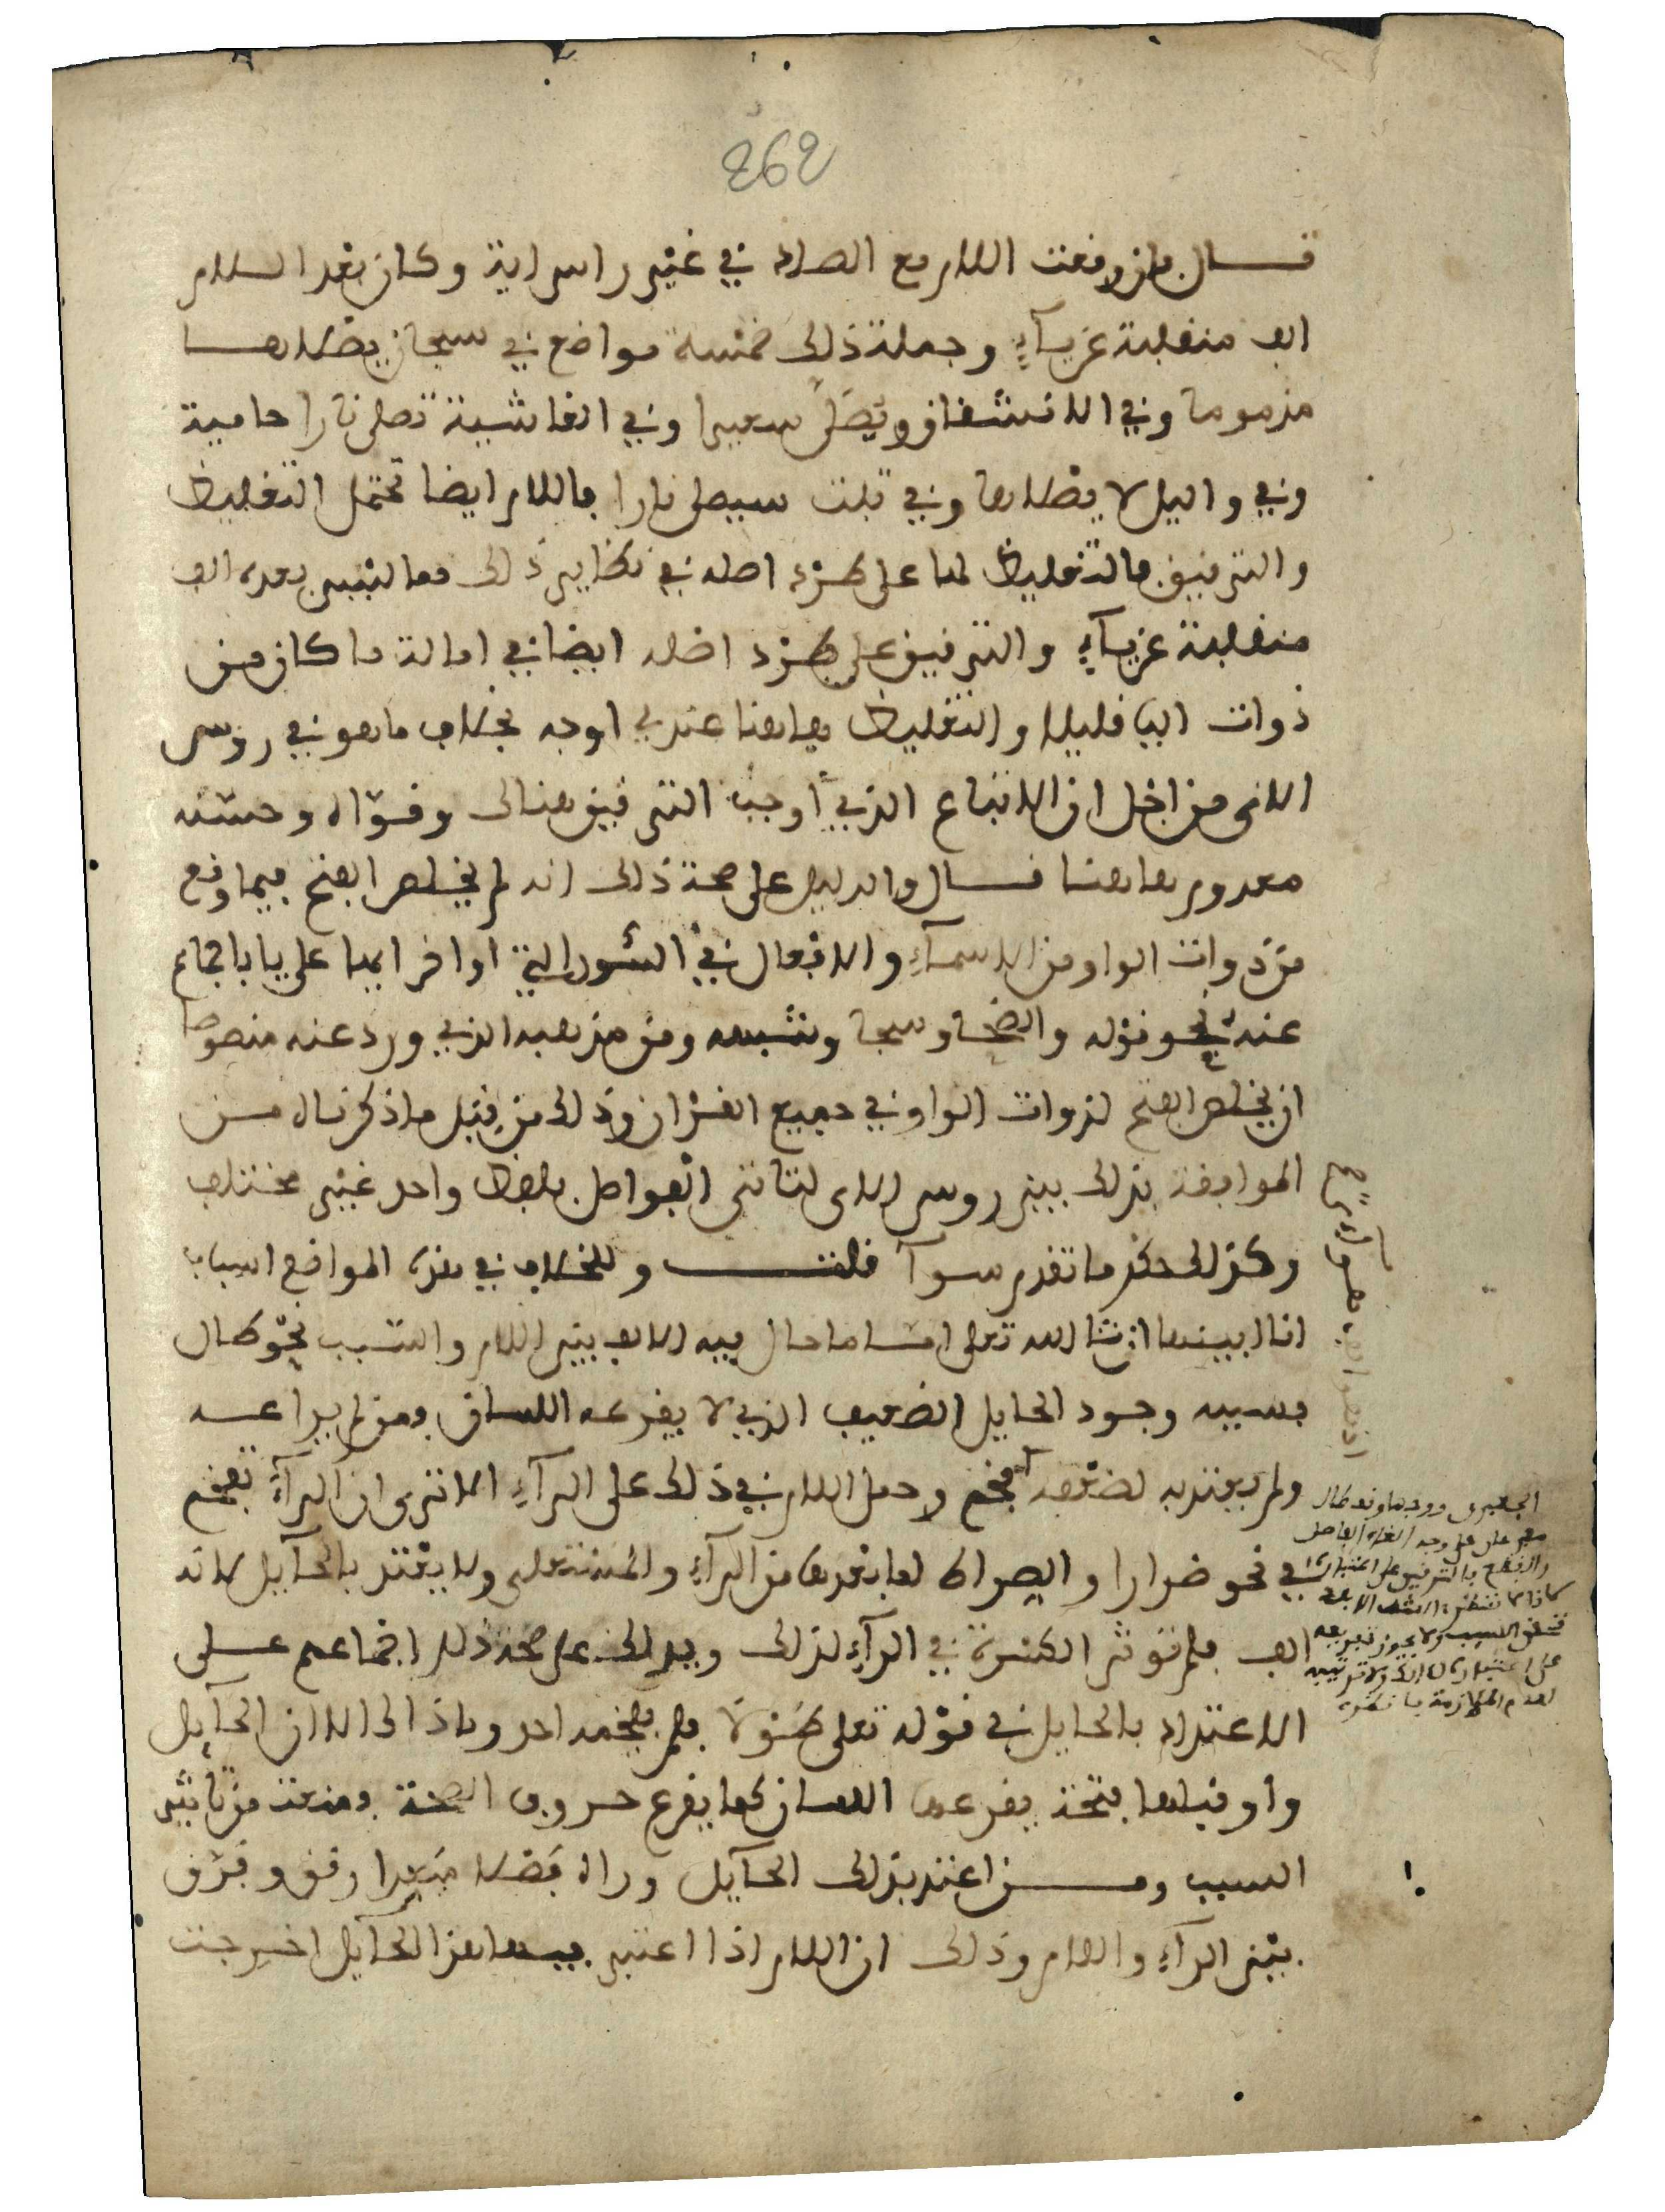 262
قال فإن وقعت اللام مع الصاد في غير راس اية وكان بعد اللام
الف منقلبة عن يآء وجملة ذلك خمسة مواضع في سبحان يصلاها
مذموما وفي الانشقاق ويصلى سعيرا وفي الغاشية تصلى نارا حامية
وفي واليل لا يصلاها وفي تبت سيصلى نارا فاللام ايضا تحتمل التغليظ
والترقيق فالتغليظ لها على طرد اصله في نظاير ذلك مما ليس بعده الف
منقلبة عن يآء والترقيق على طرد اصله ايضا في امالة ما كان من
ذوات اليا قليلا والتغليظ هاهنا عندي اوجه بخلاف ما هو في رؤس
الاى من اجل ان الاتباع الذي أوجب الترقيق هنالك وقوّاه وحسّنه
معدوم هاهنا قال والدليل على صحة ذلك انه لم يخلص الفتح فيما وقع
من ذوات الواو من الاسمآء والافعال في السّور التي اواخر ايها على يا باجماع
عنه نحو قوله والضحا وسجا وشبهه ومن مذهبه الذي ورد عنه منصوصا
ان يخلص الفتح لذوات الواو في جميع القرءان وذلك من قبل ما ذكرناه من
الموافقة بذلك بين روس الاى لتاتى الفواصل بلفظ واحد غير مختلف
وكذلك حكم ما تقدم سوآ قلت وللخلاف في هذه المواضع اسباب
انا ابينها ان شا الله تعلى اما ما حال فيه الالف بين اللام والسبب نحو طال
فسببه وجود الحايل الضعيف الذي لا يقرعه اللسان فمن لم يراعه
ولم يعتد به لضعفه فخم وحمل اللام في ذلك على الرآء الا ترى ان الرآء تفخم
في نحو ضرارا والصراط لما بعدها من الرآء والمستعلى ولا يعتد بالحآيل لانه
الف فلم تؤثر الكسرة في الرآء لذلك ويدلك على صحة ذلك اجماعهم على
الاعتداد بالحايل في قوله تعلى طَوْلا فلم يفخمه احد وما ذاك الا ان الحآيل
واو قبلها فتحة يقرعها اللسان كما يقرع حروف الصحة فمنعت من تاثير
السبب ومن اعتد بذلك الحآيل وراه فصلا مبعدا رقق وفرق
بين الرآء واللام وذلك ان اللام اذا اعتبر فيها هذا الحايل اخرجت
الجعبرى ووجها ونحو طال